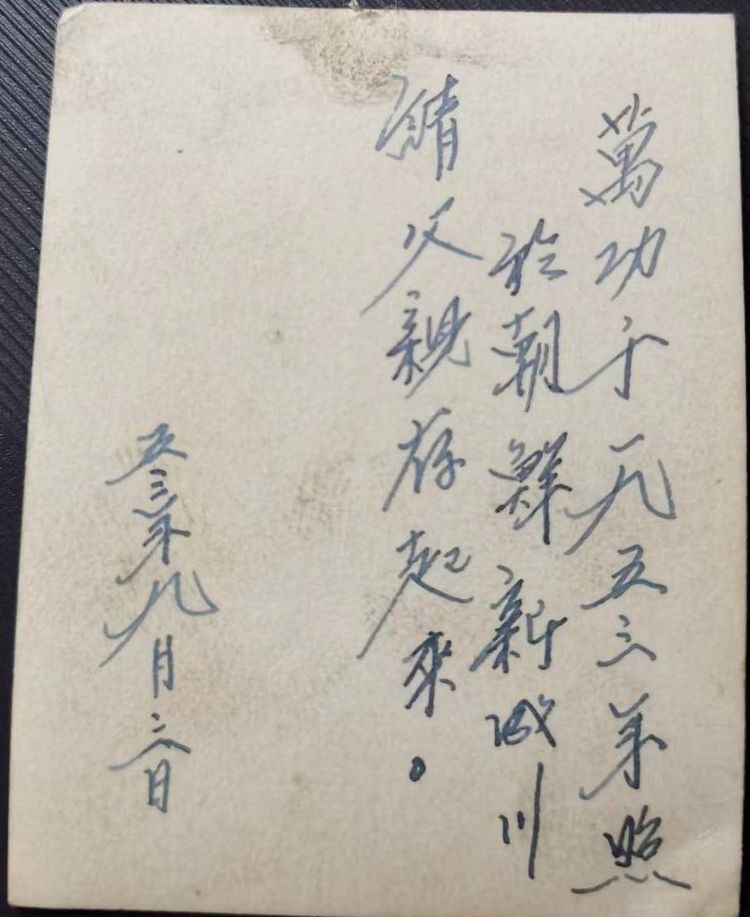 萬功于一九五三年照
於朝鮮新成川
請父親存起來。
五三年九月六日